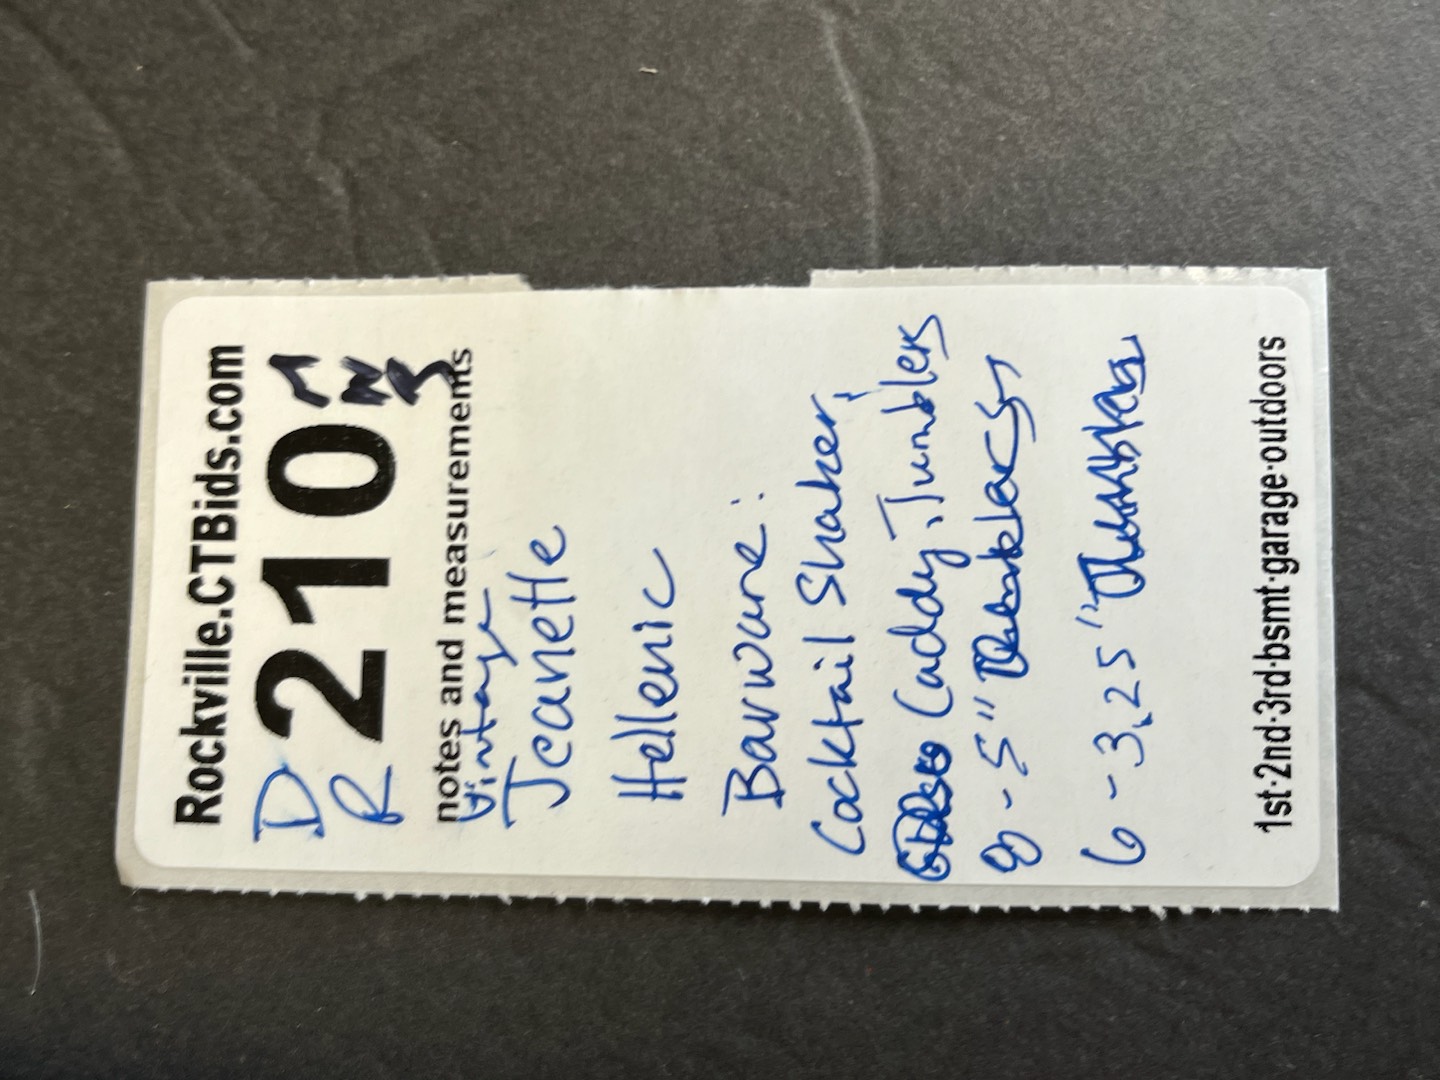 Rockville.CTBids.com
DR 210
notes and measurements
Vintage
Jeanette
Hellenic
Barware:
Cocktail Shaker,
Caddy, Tumblers
8 - 5"
6 - 3.25"
1st·2nd·3rd·bsmt·garage·outdoors